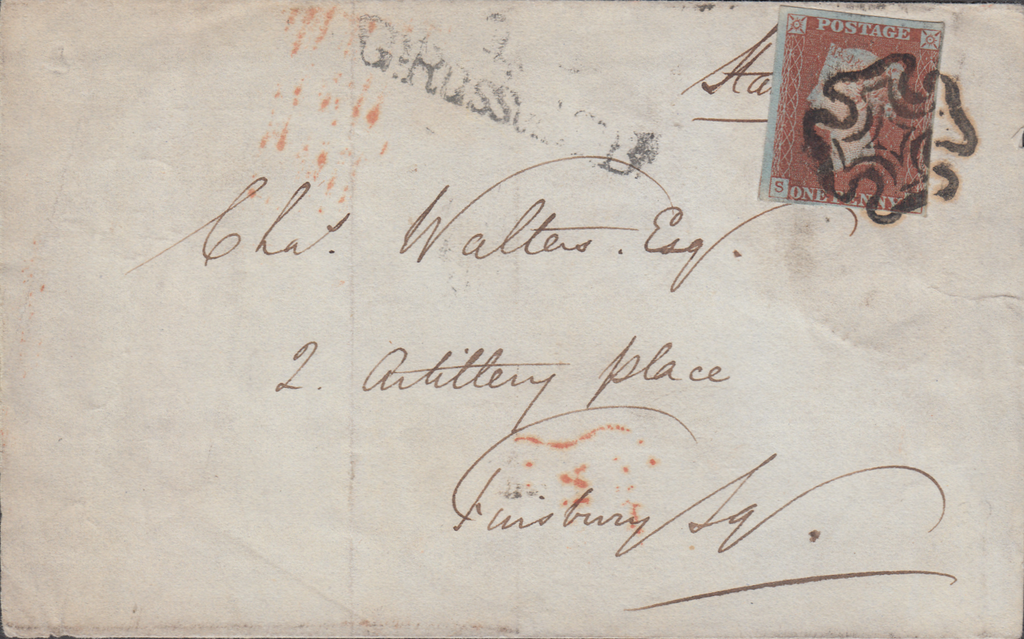 G. Russ
Sta
POSTAGE
S
ONE PENNY
Chas. Walters. Esq.
2. Artillery place
Finsbury Sq.